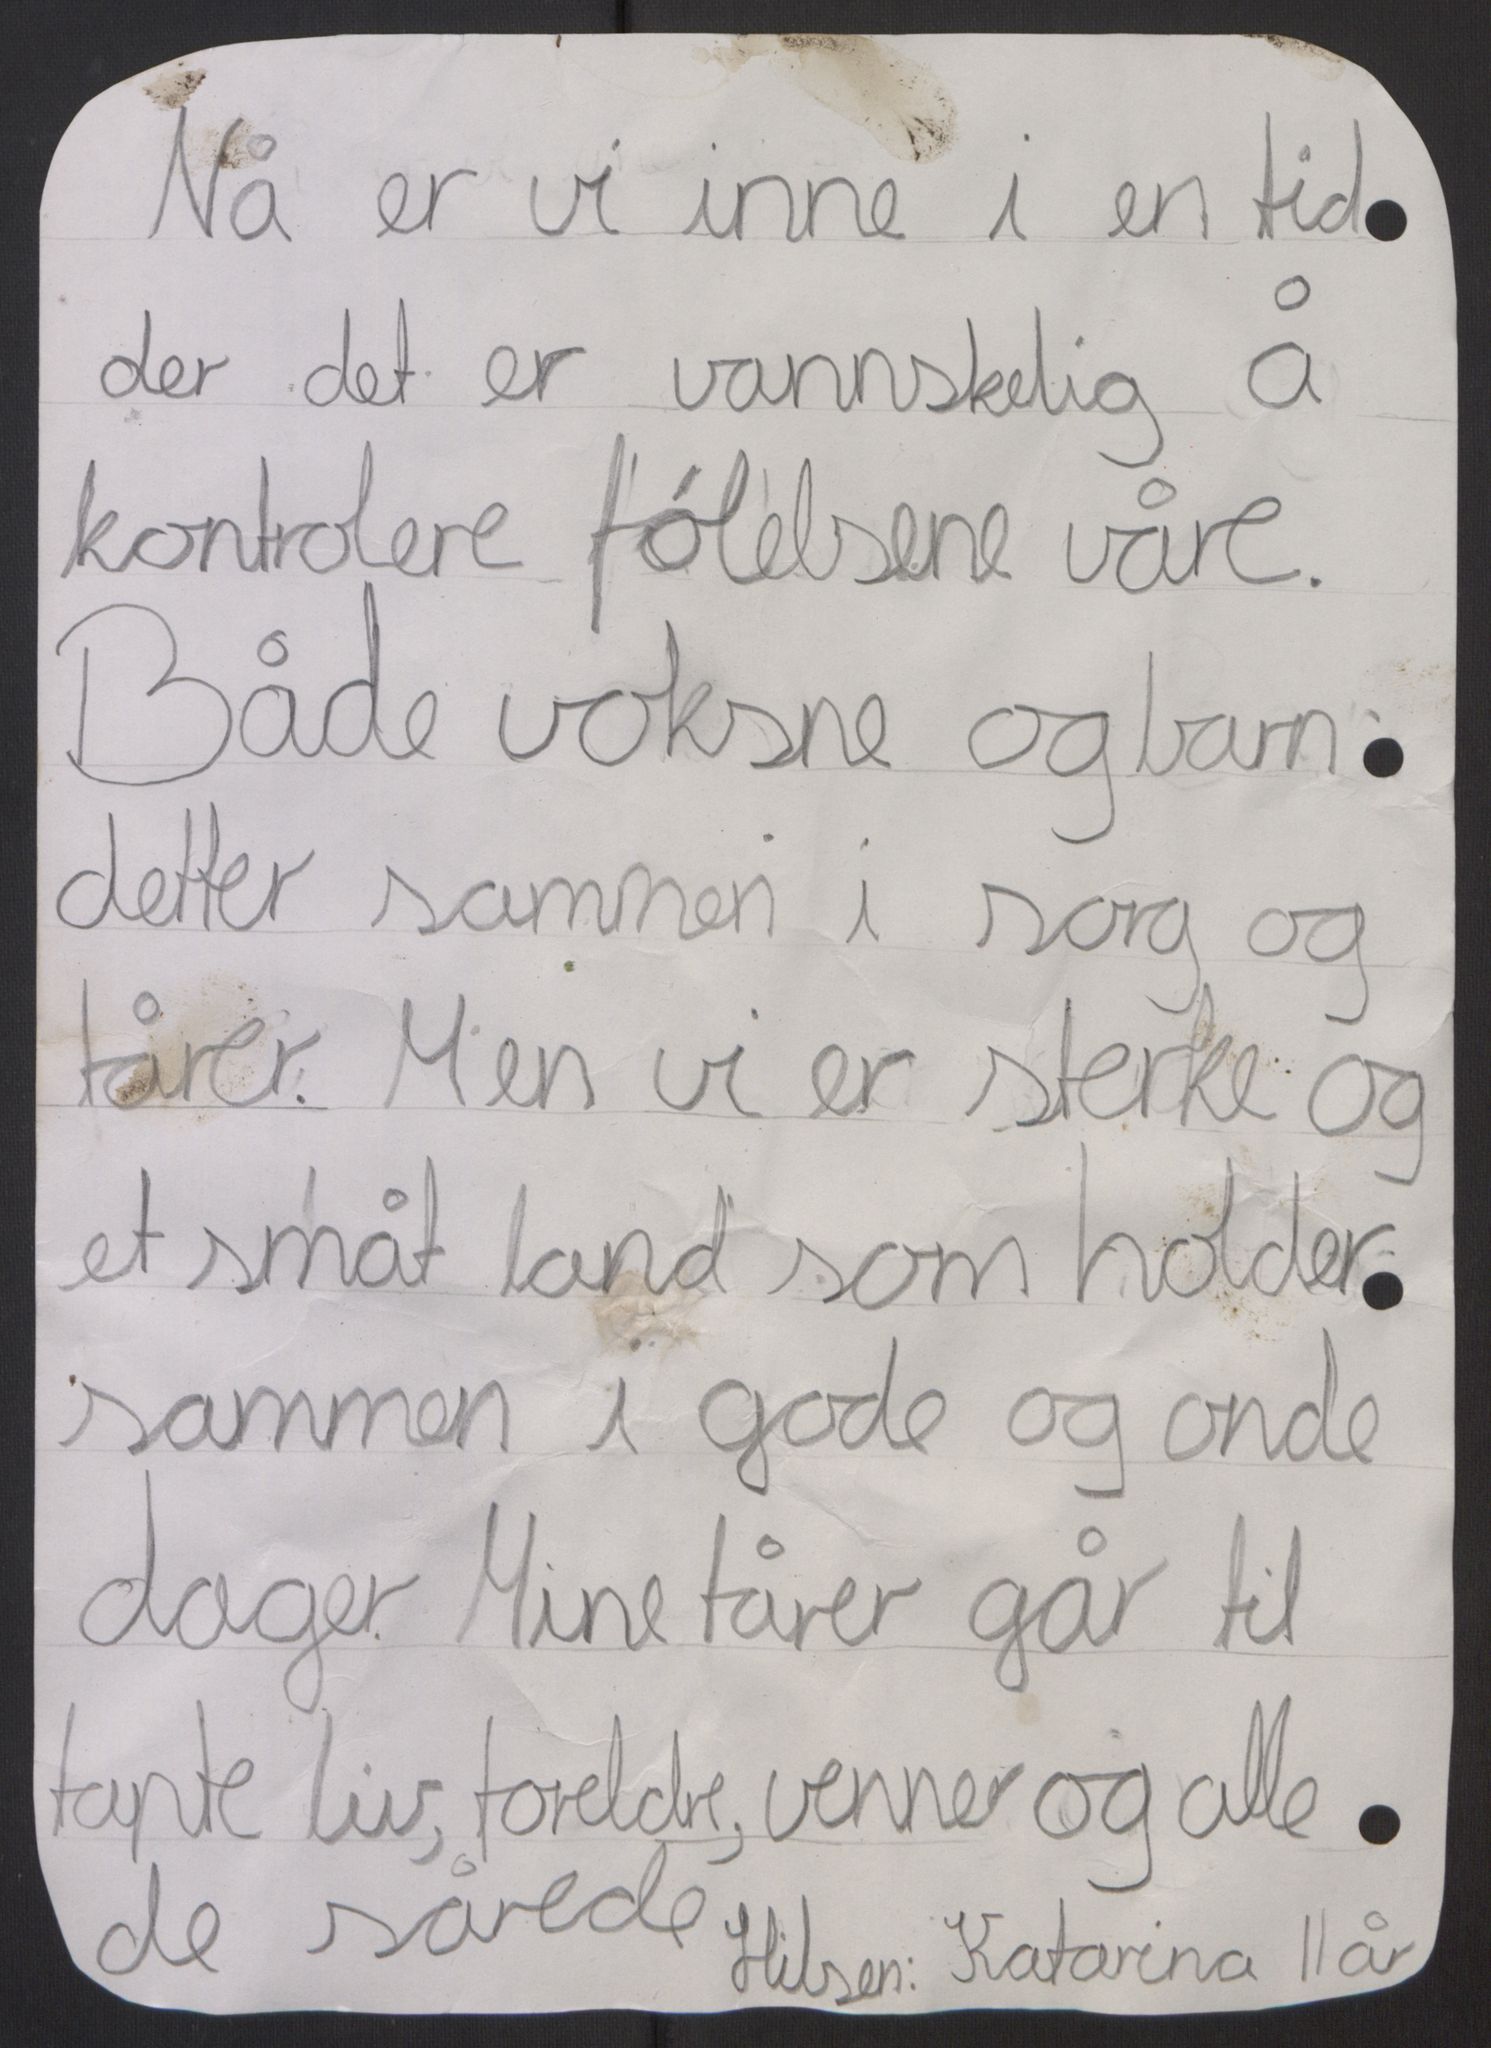 Nå er vi inne i en tid
der det er vannskelig å
kontrolere fólelsene våre.
Både voksne og barn
detter sammen i sorg og
tårer. Men vi er sterke og
et småt land som holder
sammen i gode og onde
dager. Mine tårer går til
tapte liv, foreldre, venner og alle
de sårede
Hilsen: Katarina 11 år